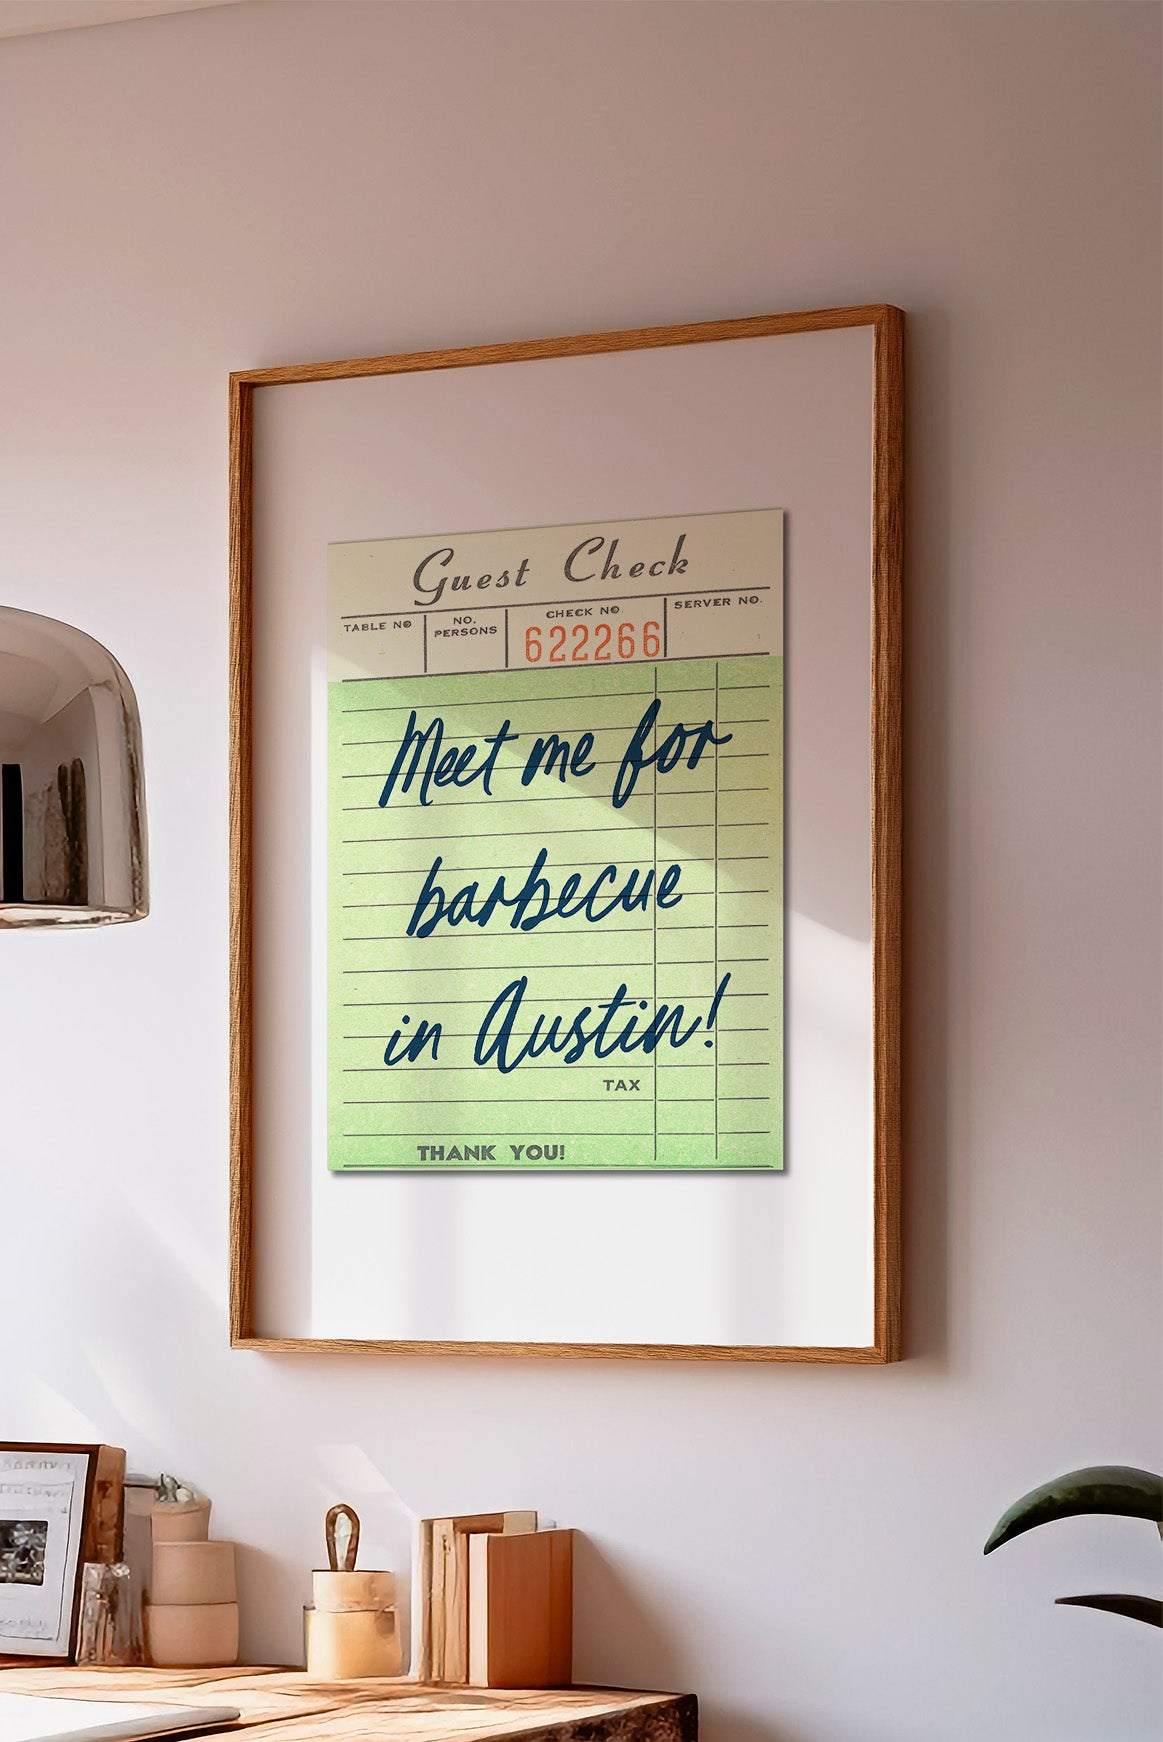 Guest Check
TABLE No
NO. PERSONS
CHECK No
622266
SERVER NO.
Meet me for
barbecue
in Austin!
TAX
THANK YOU!